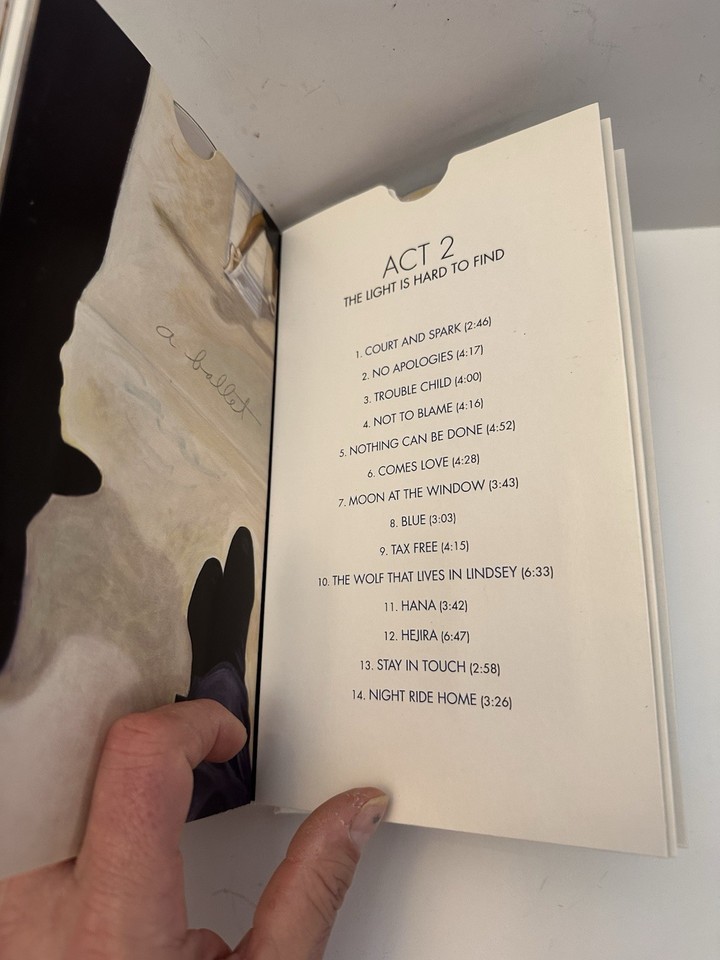 a ballet
ACT 2
THE LIGHT IS HARD TO FIND
1. COURT AND SPARK (2:46)
2. NO APOLOGIES (4:17)
3. TROUBLE CHILD (4:00)
4. NOT TO BLAME (4:16)
5. NOTHING CAN BE DONE (4:52)
6. COMES LOVE (4:28)
7. MOON AT THE WINDOW (3:43)
8. BLUE (3:03)
9. TAX FREE (4:15)
10. THE WOLF THAT LIVES IN LINDSEY (6:33)
11. HANA (3:42)
12. HEJIRA (6:47)
13. STAY IN TOUCH (2:58)
14. NIGHT RIDE HOME (3:26)